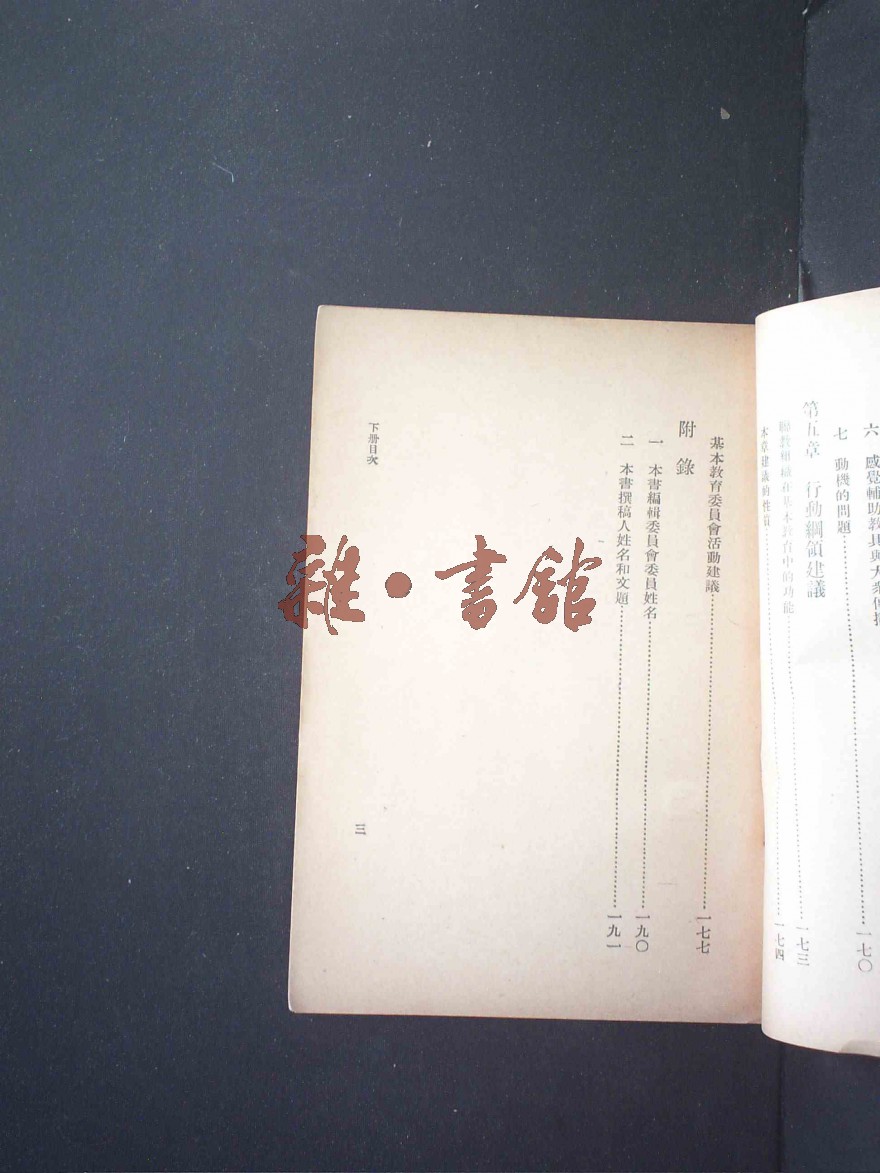 六　感覺輔助敎具與大衆傳
七　動機的問題……………一七〇
第五章　行動綱領建議
聯敎組織在基本敎育中的功能……………一七三
本章建議的性質……………一七四
基本敎育委員會活動建議……………一七七
附錄
一　本書編輯委員會委員姓名……………一九〇
二　本書撰稿人姓名和文題……………一九一
下册目次
三
雜·書館